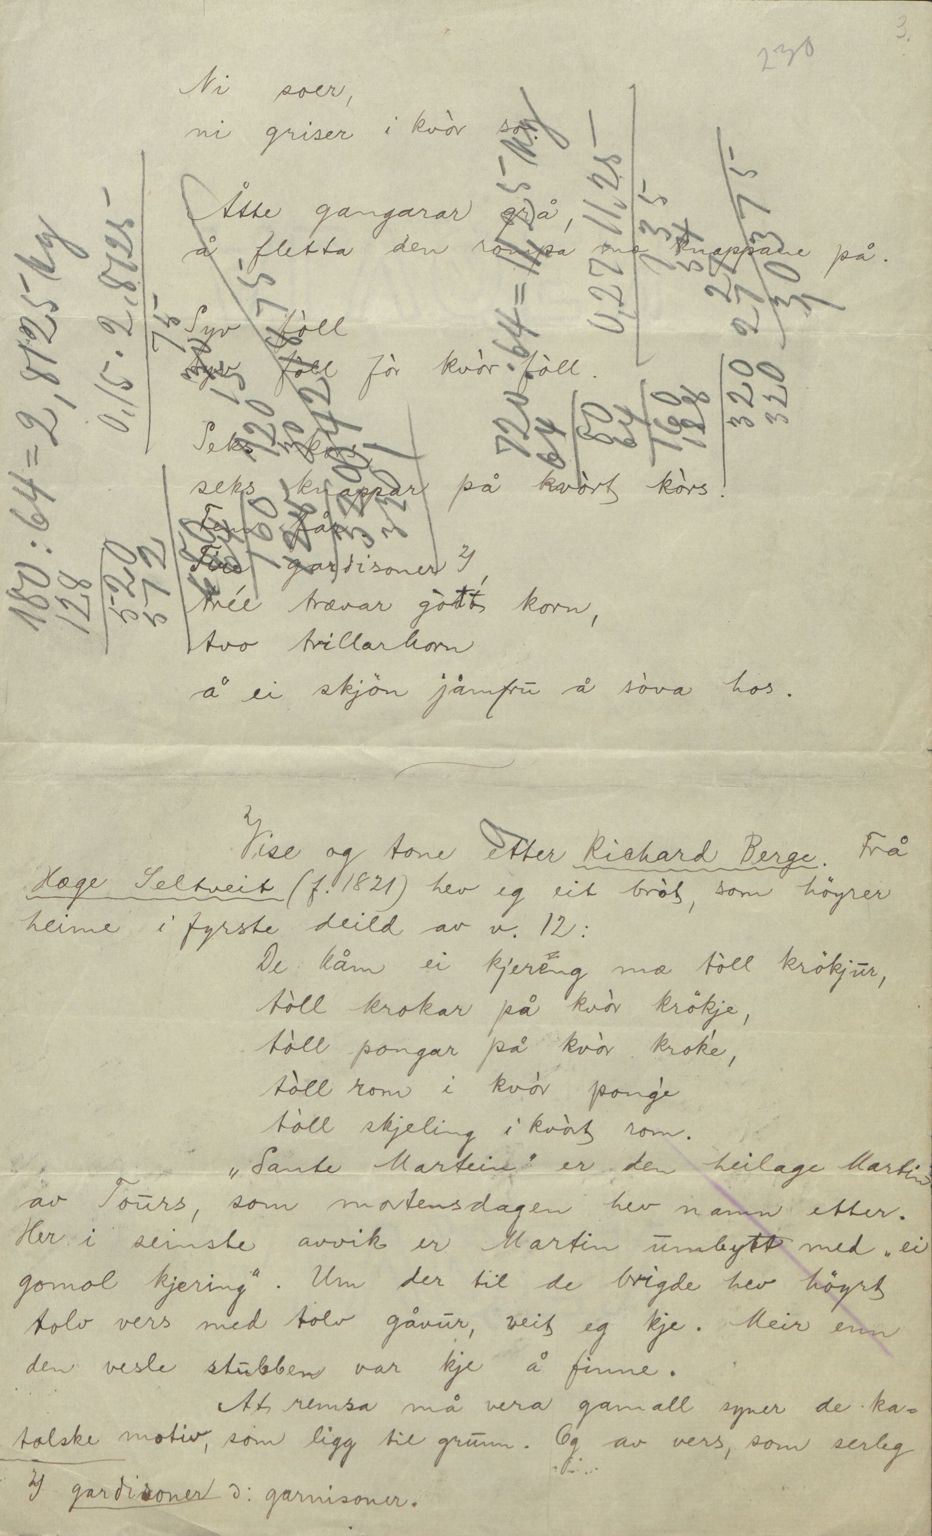 3.
230
Ni soer,
ni griser i kvòr so.
Åtte gangarar grå,
å fletta den rompa mæ knappane på.
Syv föll
syv föll för kvòr föll.
Seks kors,
seks knappar på kvòrt kòrs.
Fem får
gardisoner 2)
tréé trævar gòtt korn,
tvo trillarhorn
å ei skjön jåmfrū å sòva hos.
180:64=2,8125 kg
128
520
512
0,15 · 2,8125
75
720:64=11,25 kg
64
80
64
160
128
320
320
0,27 · 11,25
135
54
27
27
3,0375
2) Vise og tone etter Richard Berge. Frå
Hæge Seltveit (f. 1821) hev eg eit bròt, som höyrer
heime i fyrste deild av v. 12:
De kåm ei kjereng mæ tòll krökjūr,
tòll krokar på kvòr krökje,
tòll pongar på kvòr kroké,
tòll rom i kvòr pongé
tòll skjeling i kvòrt rom.
„Sante Martein" er den heilage Martin
av Toūrs, som mortensdagen hev namn etter.
Her i seinste avvik er Martin ūmbytt med „ei
gomol kjering". Um der til de brigde hev höyrt
tolv vers med tolv gåvūr, veit eg kje. Meir enn
den vesle stūbben var kje å finne.
At remsa må vera gamall syner de ka=
tolske motiv, som ligg til grūnn. Og av vers, som serleg
2) gardisoner ɔ: garnisoner.